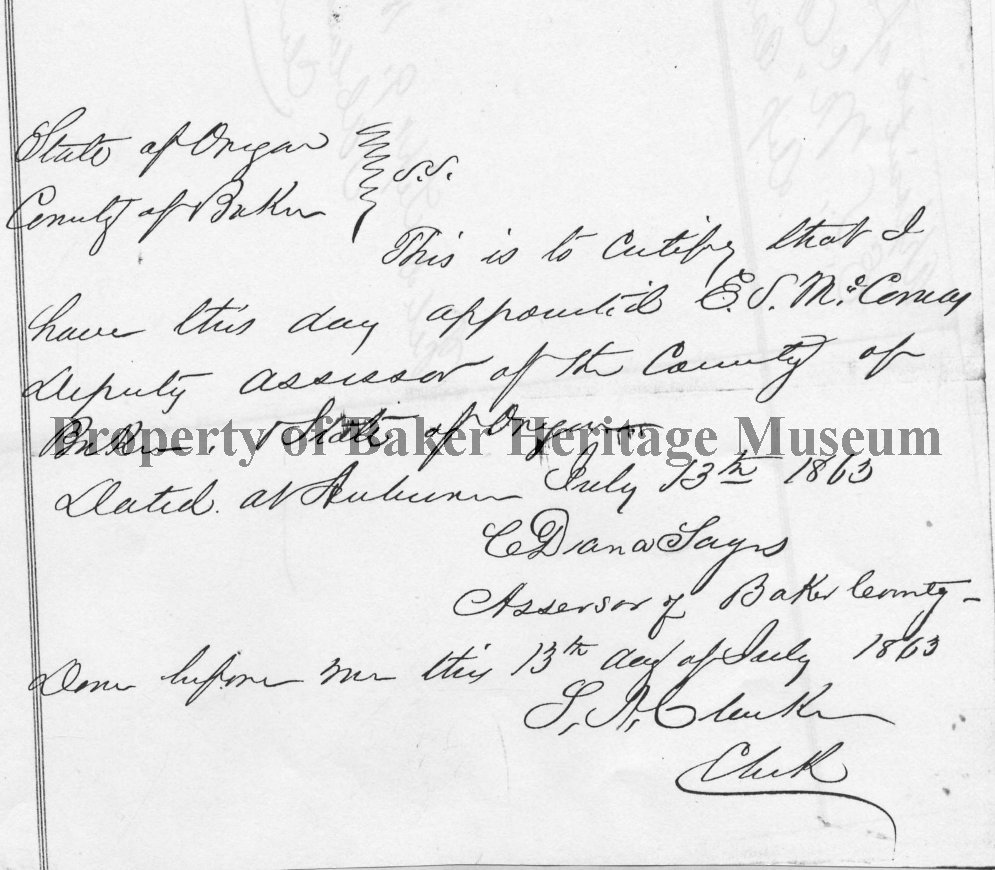 State of Oregon
County of Baker } S.S.
This is to certify that I
have this day appointed E. S. McComas
Deputy assessor of the County of
Baker. & State of Oregon
Property of Baker Heritage Museum
Dated. at Auburn July 13th 1863
C Dana Sayrs
Assessor of Baker County
Done before me this 13th day of July 1863
S. A. Clarke
Clerk